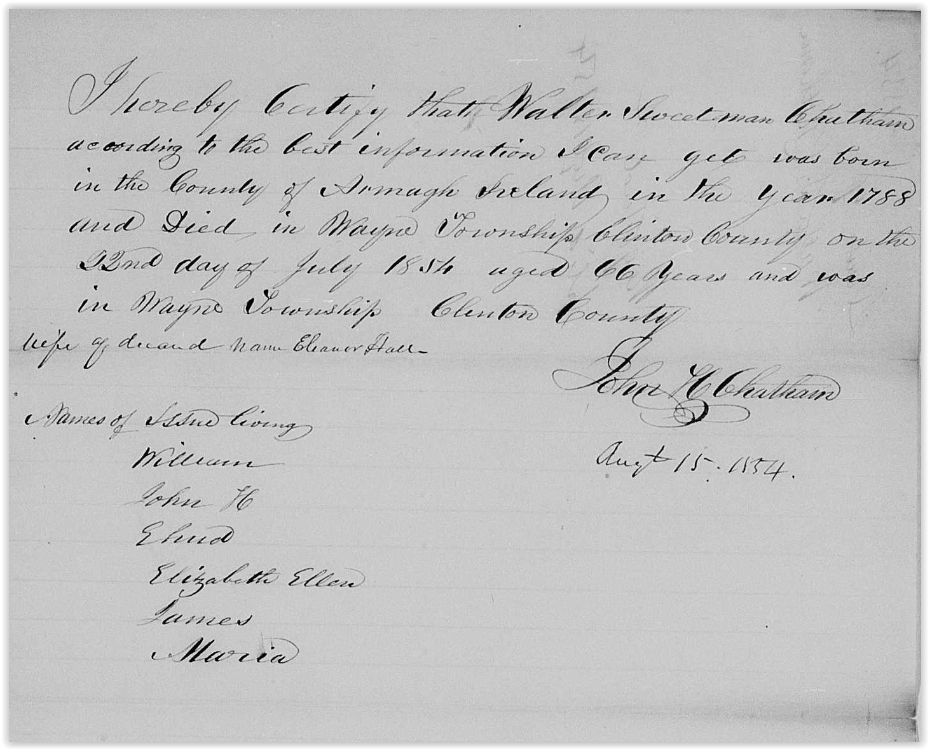 I hereby Certify that Walter Sweetman Chatham
according to the best information I can get was born
in the County of Armagh Ireland in the year 1788
and Died in Wayne Township Clinton County on the
22nd day of July 1854 aged 66 Years and was
in Wayne Township Clinton County
Wife of deceased name Eleanor Hall
John H Chatham
Names of Issue living
William
Augt 15. 1854.
John H
Ehud
Elizabeth Ellen
James
Maria